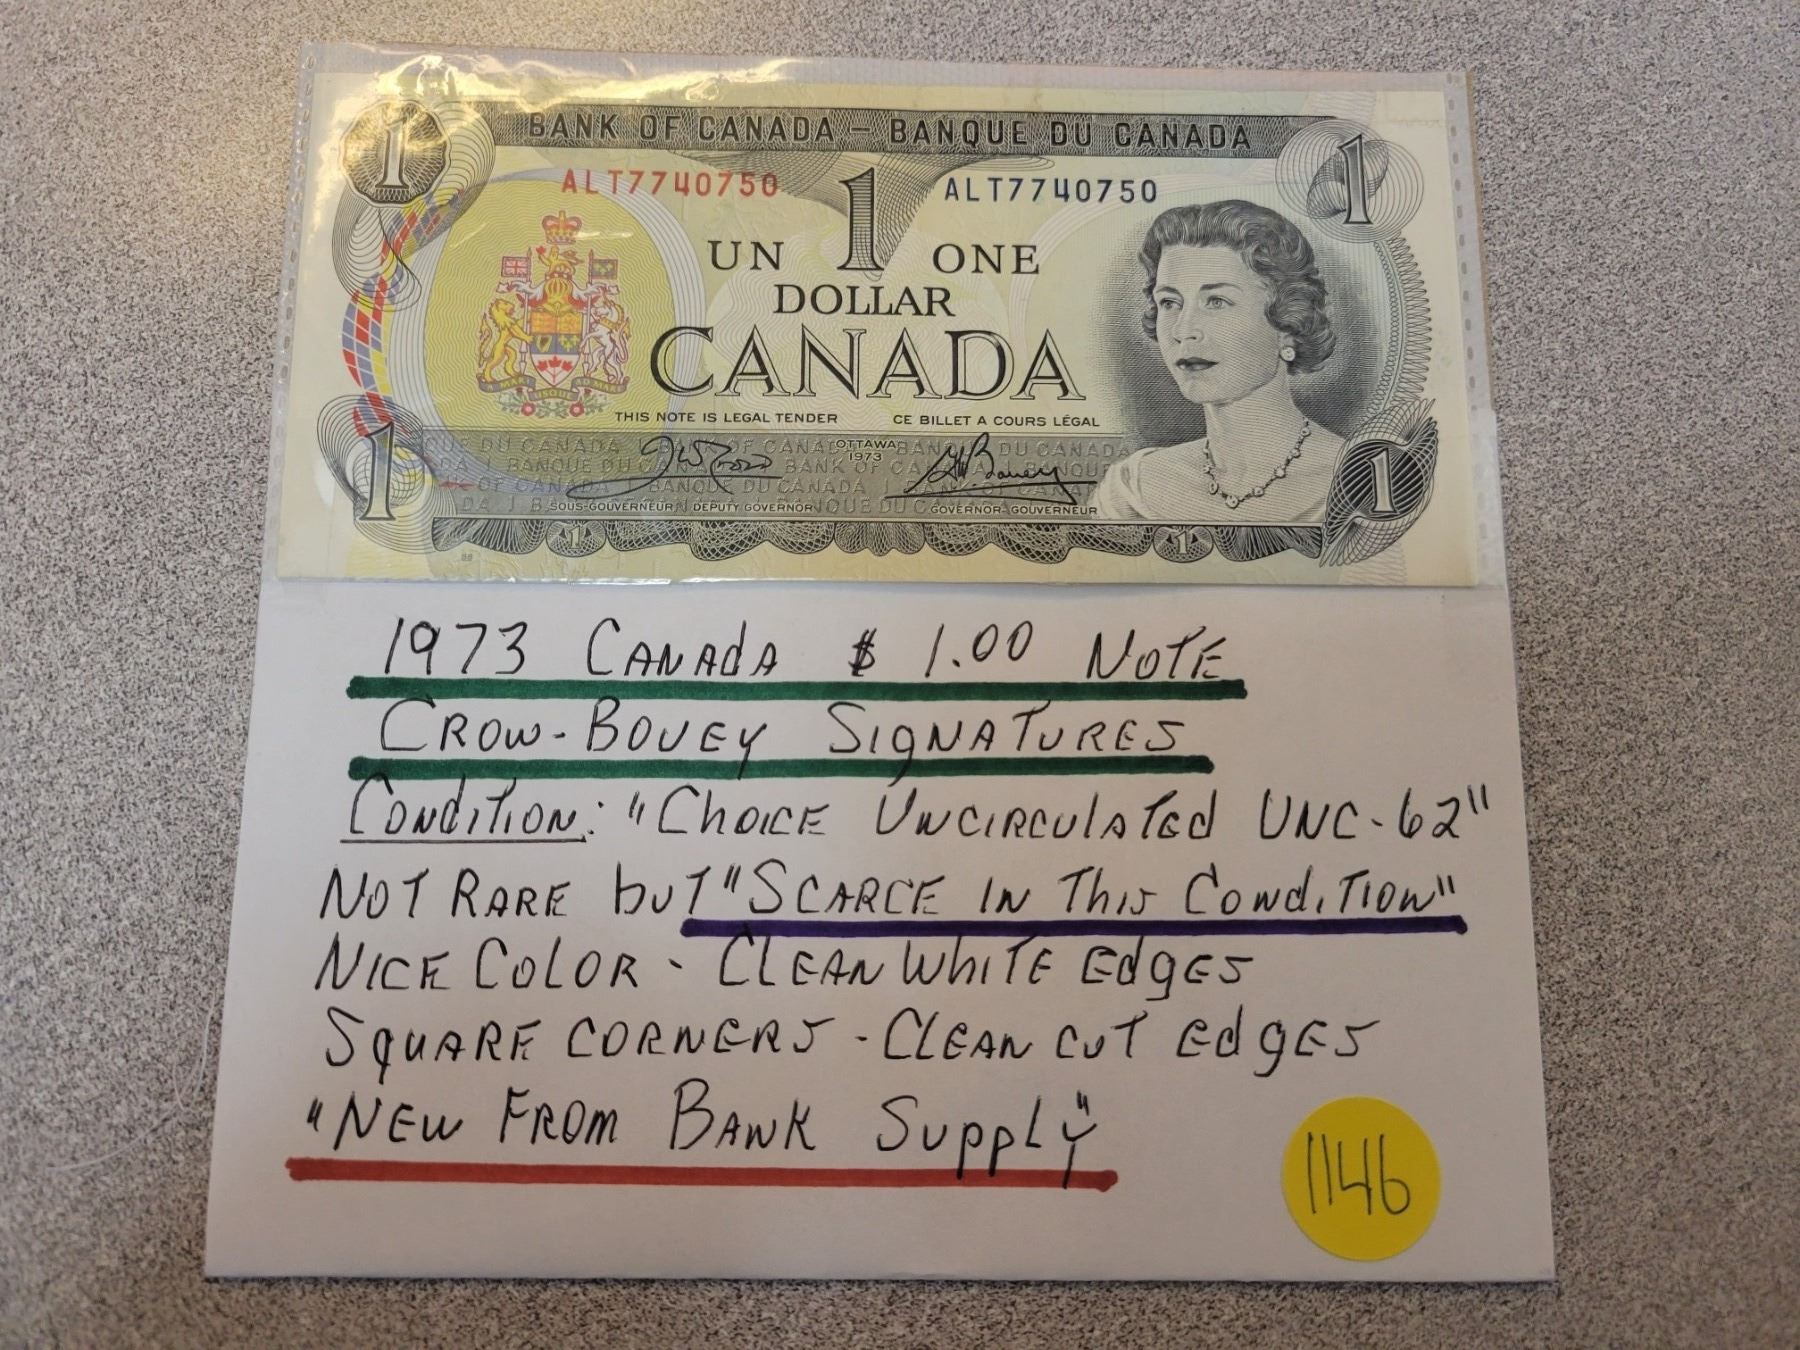 1
BANK OF CANADA – BANQUE DU CANADA
1
ALT7740750
1
ALT7740750
UN
ONE
DOLLAR
CANADA
A MARI USQUE AD MARE
THIS NOTE IS LEGAL TENDER
CE BILLET A COURS LÉGAL
OTTAWA
1973
SOUS-GOUVERNEUR DEPUTY GOVERNOR
GOVERNOR-GOUVERNEUR
1
1
1
1
1973 CANADA $ 1.00 NOTE
CROW-BOUEY SIGNATURES
CONDITION: "CHOICE UNCIRCULATED UNC-62"
NOT RARE but "SCARCE IN THIS CONDITION"
NICE COLOR - CLEAN WHITE EDGES
SQUARE CORNERS - CLEAN CUT EDGES
"NEW FROM BANK SUPPLY"
1146